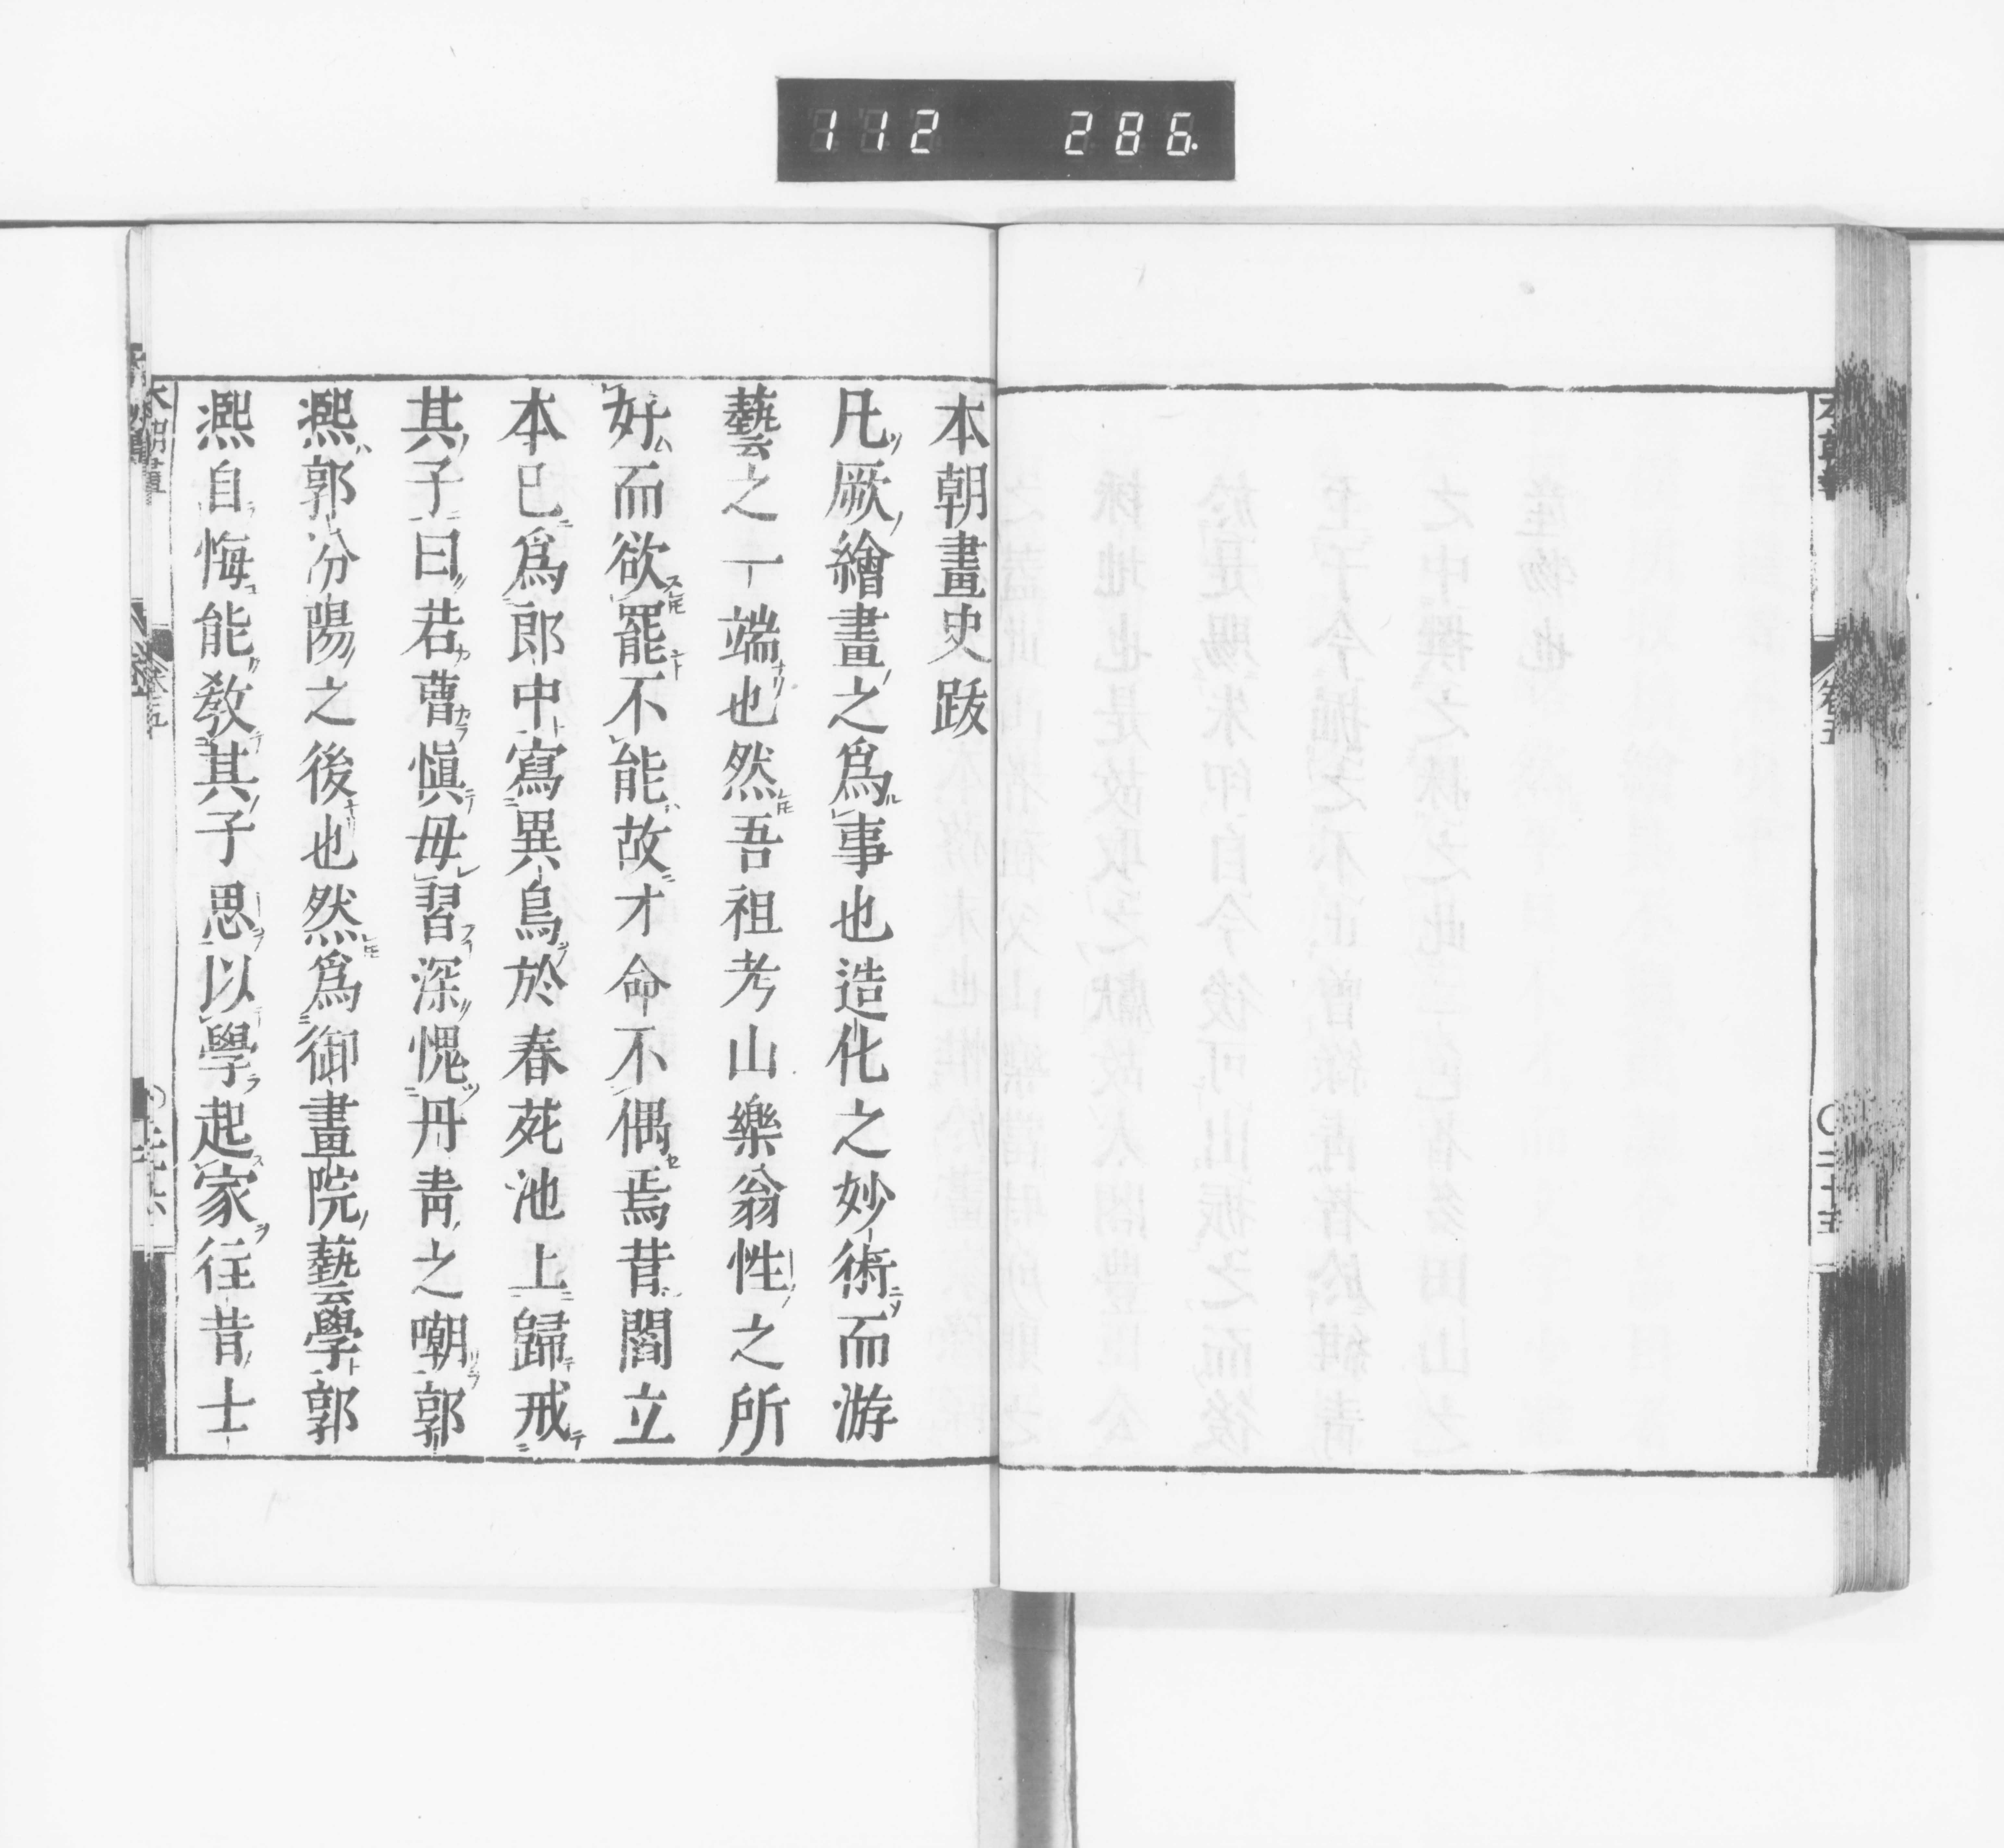 112 286.
本朝畫史跋
凡厥繪畫之爲事也造化之妙術而游
藝之一端也然吾祖考山樂翁性之所
好而欲罷不能故才命不偶焉昔閻立
本已爲郎中寫異鳥於春苑池上歸戒
其子曰若曹愼毋習深愧丹靑之嘲郭
熙郭汾陽之後也然爲御畫院藝學郭
熙自悔能敎其子思以學起家往昔士